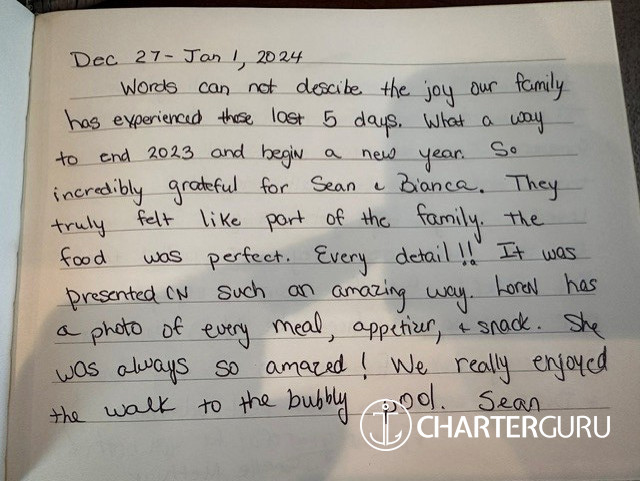 Dec 27 - Jan 1, 2024
Words can not descibe the joy our family
has experienced these last 5 days. What a way
to end 2023 and begin a new year. So
incredibly grateful for Sean & Bianca. They
truly felt like part of the family. The
food was perfect. Every detail!! It was
presented in such an amazing way. Loren has
a photo of every meal, appetizer, + snack. She
was always so amazed! We really enjoyed
the walk to the bubbly pool. Sean
CHARTERGURU